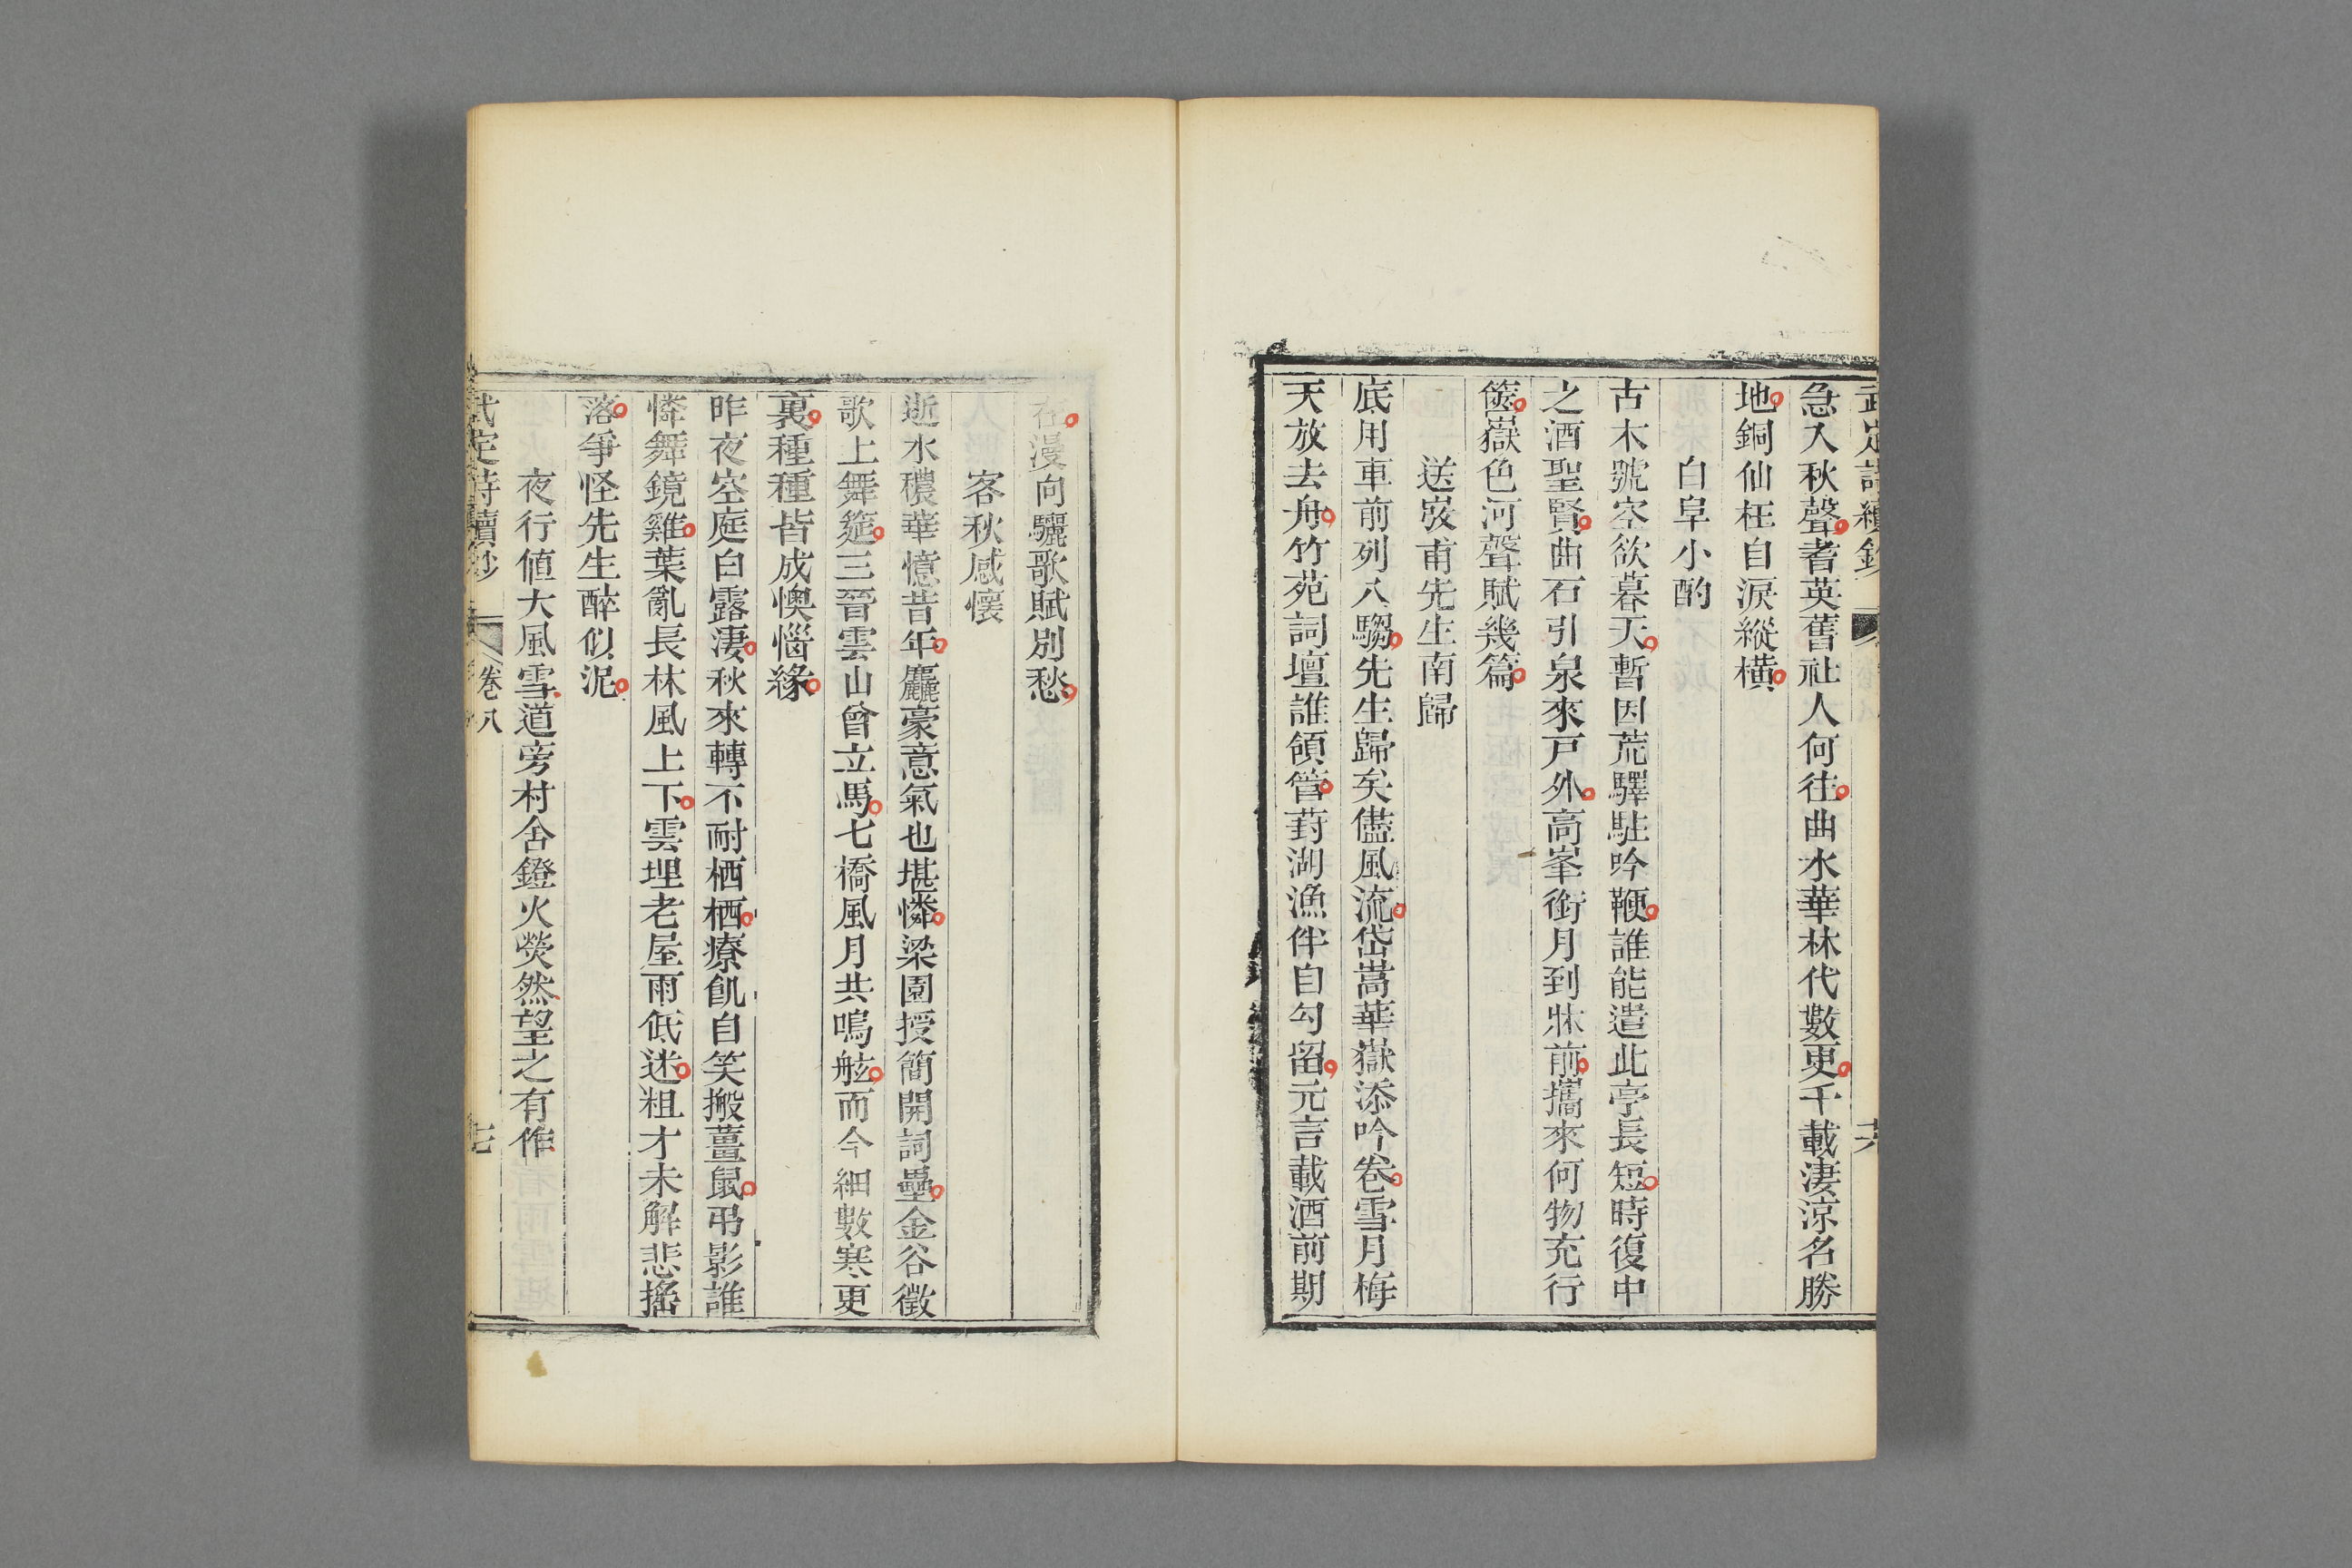 武定詩續鈔
急入秋聲耆英舊社人何往曲水華林代數更千載淒涼名勝
地銅仙枉自淚縱橫
白阜小酌
古木號空欲暮天暫因荒驛駐吟鞭誰能遣此亭長短時復中
之酒聖賢曲石引泉來戸外高峯銜月到牀前攜來何物充行
篋嶽色河聲賦幾篇
送崁甫先生南歸
底用車前列八騶先生歸矣儘風流岱嵩華嶽添吟卷雪月梅
天放去舟竹苑詞壇誰領管葑湖漁伴自勾留元言載酒前期
在漫向驪歌賦別愁
客秋感懷
逝水穠華憶昔年麤豪意氣也堪憐梁園授簡開詞壘金谷徵
歌上舞筵三晉雲山曾立馬七橋風月共鳴舷而今細數寒更
裏種種皆成懊惱緣
昨夜空庭白露淒秋來轉不耐栖栖療飢自笑搬薑鼠弔影誰
憐舞鏡雞葉亂長林風上下雲埋老屋雨低迷粗才未解悲搖
落爭怪先生醉似泥
夜行値大風雪道旁村舍鐙火熒然望之有作
武定詩續鈔
卷八